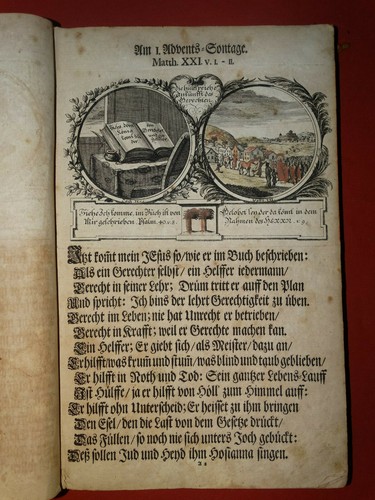 Am 1. Advents-Sontage.
Matth. XXI. v. 1. - 11.
der
Gerechten
Siehe Ich komme, im Buch ist von
Mir geschrieben. Psalm. 40. v. 8.
Gelobet sey der da kömt in dem
Nahmen des HERRN. v. 9.
JTzt kom̃t mein JEsus so/ wie er im Buch beschrieben:
Als ein Gerechter selbst/ ein Helffer iedermann/
Gerecht in seiner Lehr; Drüm tritt er auff den Plan
Und spricht: Ich bins der lehrt Gerechtigkeit zu üben.
Gerecht im Leben; nie hat Unrecht er betrieben/
Gerecht in Krafft; weil er Gerechte machen kan.
Ein Helffer; Er giebt sich/ als Meister/ dazu an/
Er hilfft/ was krum̃ und stum̃/ was blind und taub geblieben/
Er hilfft in Noth und Tod: Sein gantzer Lebens-Lauff
Ist Hülffe/ ja er hilfft von Höll zum Himmel auff:
Er hilfft ohn Unterscheid; Er heisset zu ihm bringen
Den Esel/ den die Last von dem Gesetze drückt/
Das Füllen/ so noch nie sich unters Joch gebückt:
Deß sollen Jud und Heyd ihm Hosianna singen.